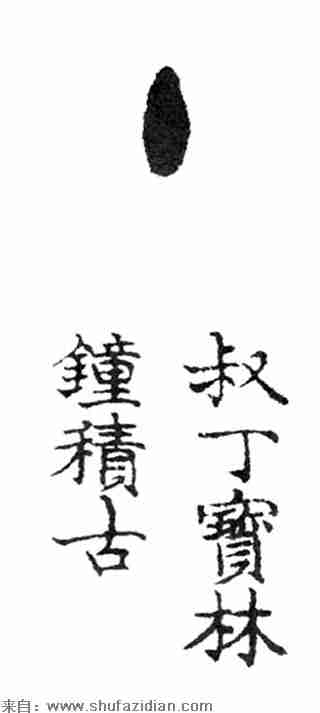 叔丁寶林
鐘積古
来自：www.shufazidian.com